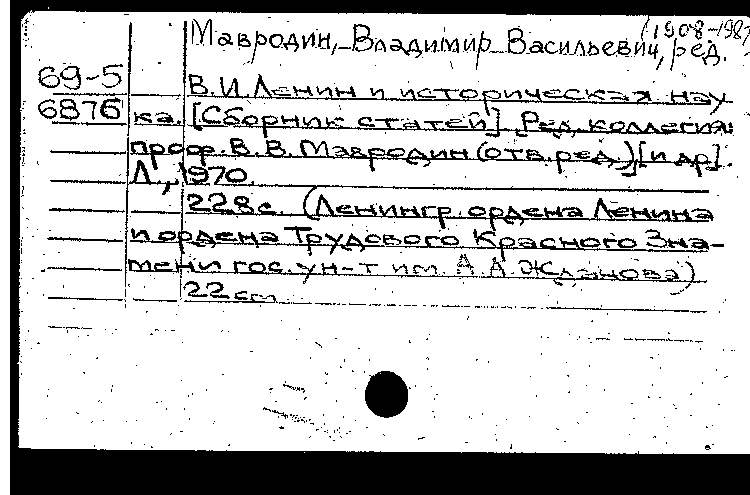 (1908-198
Мавродин, Владимир Васильевич, ред.
69-5
6876
В.И.Ленин и историческая нау
ка. [Сборник статей]. Ред. коллегия:
проф. В.В. Мавродин (отв.ред.) [и др].
Л., 1970.
228с. (Ленингр. ордена Ленина
и ордена Трудового Красного Зна-
мени гос. ун-т им. А.А.Жданова)
22см